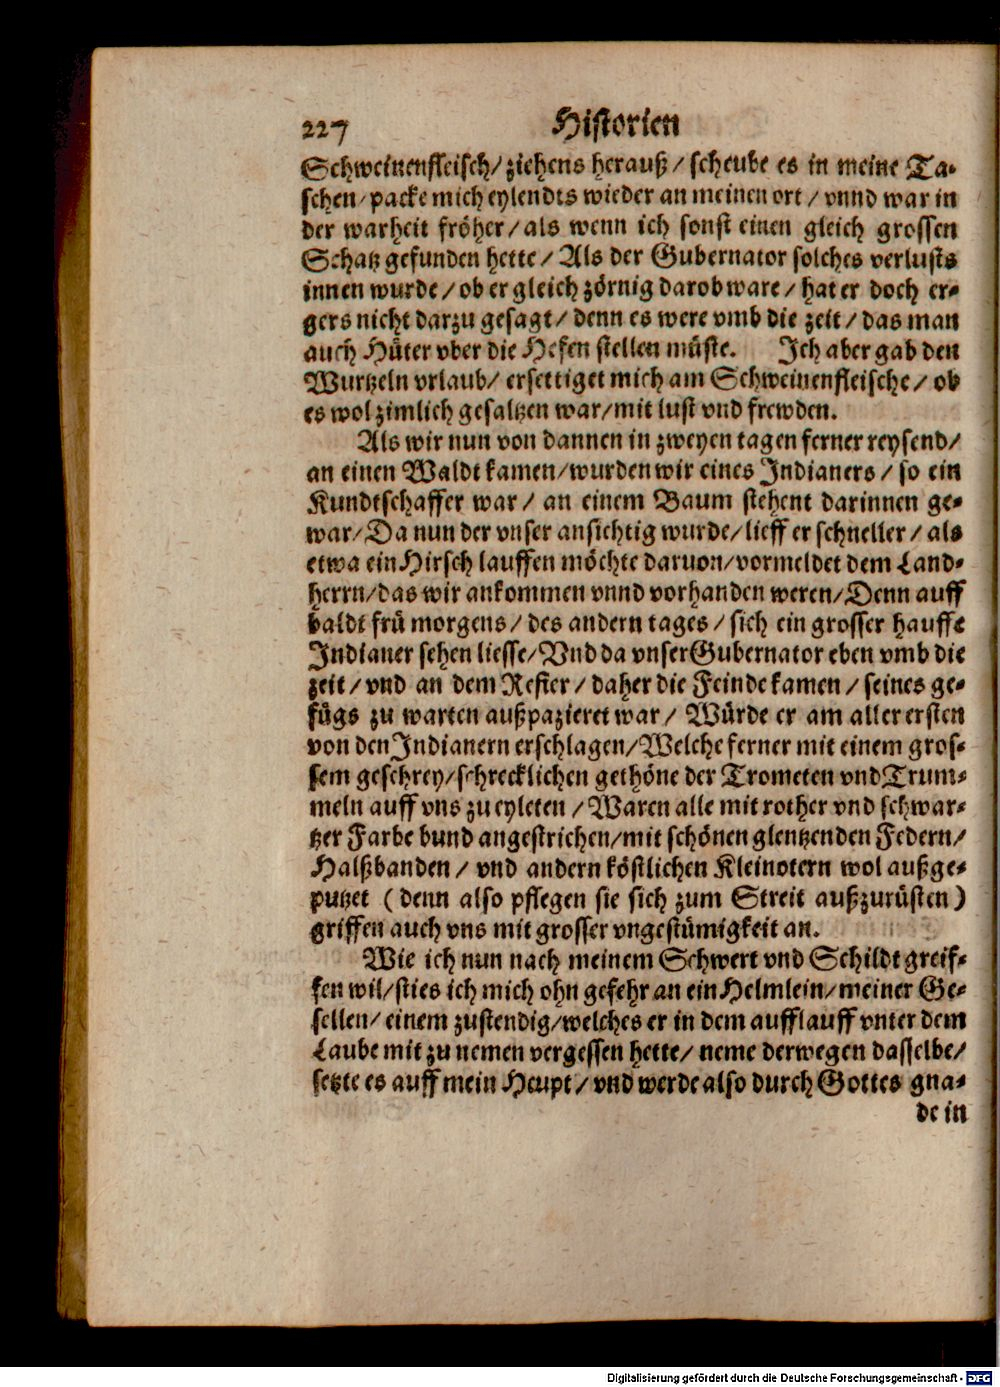 227 Historien
Schweinenfleisch/ ziehens herauß / scheube es in meine Ta-
schen/ packe mich eylendts wieder an meinen ort / vnnd war in
der warheit fröher/ als wenn ich sonst einen gleich grossen
Schatz gefunden hette / Als der Gubernator solches verlusts
innen wurde / ob er gleich zörnig darob ware / hat er doch er-
gers nicht darzu gesagt / denn es were vmb die zeit / das man
auch Hüter vber die Hefen stellen müste. Ich aber gab den
Wurtzeln vrlaub/ ersettiget mich am Schweinenfleische / ob
es wol zimlich gesaltzen war/ mit lust vnd frewden.
Als wir nun von dannen in zweyen tagen ferner reysend/
an einen Waldt kamen/ wurden wir eines Indianers / so ein
Kundtschaffer war / an einem Baum stehent darinnen ge-
war/ Da nun der vnser ansichtig wurde/ lieff er schneller / als
etwa ein Hirsch lauffen möchte daruon/ vormeldet dem Land-
herrn/ das wir ankommen vnnd vorhanden weren/ Denn auff
baldt frü morgens / des andern tages / sich ein grosser hauffe
Indianer sehen liesse/ Vnd da vnser Gubernator eben vmb die
zeit / vnd an dem Refier / daher die Feinde kamen / seines ge-
fügs zu warten außpazieret war / Würde er am aller ersten
von den Indianern erschlagen/ Welche ferner mit einem gros-
sem geschrey/ schrecklichen gethöne der Trometen vnd Trum-
meln auff vns zu eyleten / Waren alle mit rother vnd schwar-
tzer Farbe bund angestrichen/ mit schönen glentzenden Federn/
Halßbanden / vnd andern köstlichen Kleinotern wol außge-
putzet ( denn also pflegen sie sich zum Streit außzurüsten )
griffen auch vns mit grosser vngestümigkeit an.
Wie ich nun nach meinem Schwert vnd Schildt greif-
fen wil/ sties ich mich ohn gefehr an ein Helmlein/ meiner Ge-
sellen/ einem zustendig/ welches er in dem aufflauff vnter dem
Laube mit zu nemen vergessen hette/ neme derwegen dasselbe/
setzte es auff mein Heupt / vnd werde also durch Gottes gna-
de in
Digitalisierung gefördert durch die Deutsche Forschungsgemeinschaft - DFG